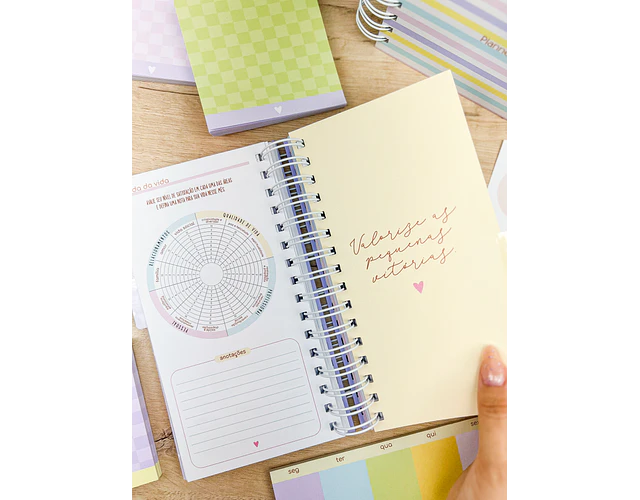 da vida
AVALIE SEU NÍVEL DE SATISFAÇÃO EM CADA UMA DAS ÁREAS
E DEFINA UMA NOTA PARA SUA VIDA NESSE MÊS.
QUALIDADE DE VIDA
RELACIONAMENTOS
PESSOAL
PROFISSIONAL
anotações
Valorize as
pequenas
vitórias
Planne
seg
ter
qua
qui